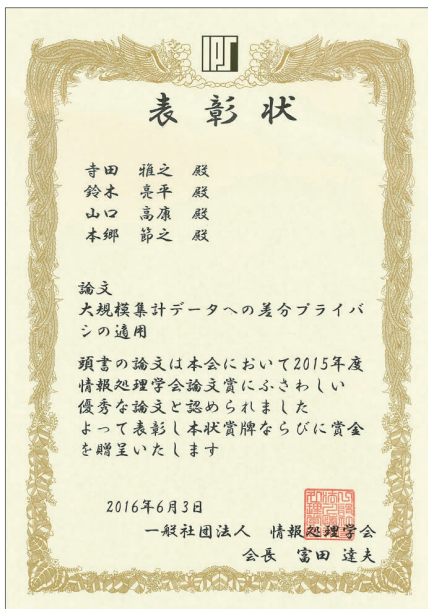 IPS
表彰状
寺田 雅之 殿
鈴木 亮平 殿
山口 高康 殿
本郷 節之 殿
論文
大規模集計データへの差分プライバ
シの適用
頭書の論文は本会において2015年度
情報処理学会論文賞にふさわしい
優秀な論文と認められました
よって表彰し本状賞牌ならびに賞金
を贈呈いたします
2016年6月3日
一般社団法人 情報処理学会
会長 富田 達夫